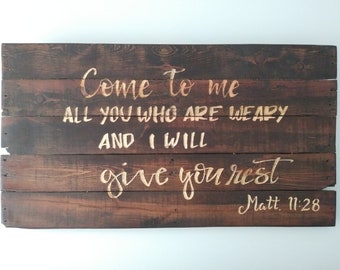 Come to me
ALL YOU WHO ARE WEARY
AND I WILL
give you rest
Matt. 11:28